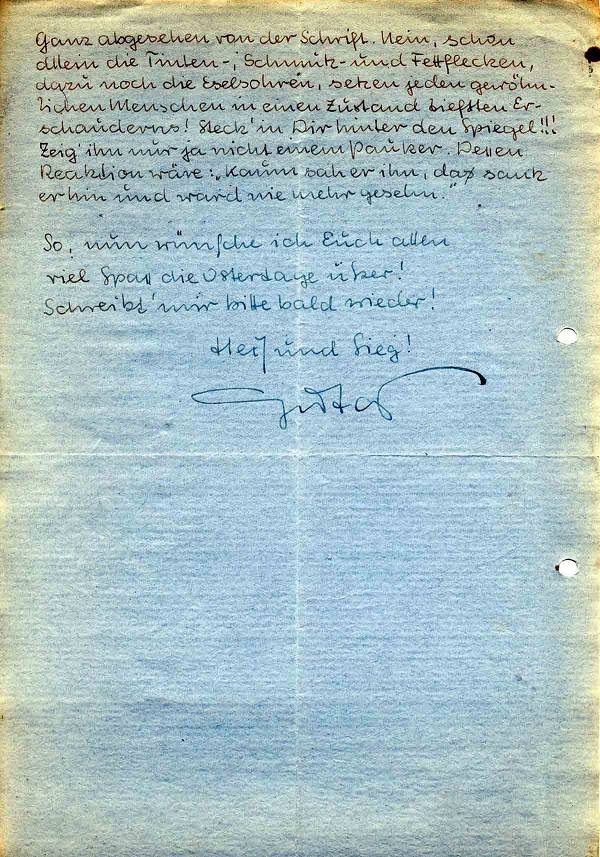 Ganz abgesehen von der Schrift. Nein, schon
allein die Tinten-, Schmutz- und Fettflecken,
dazu noch die Eselsohren, setzen jeden gewöhn-
lichen Menschen in einen Zustand tiefsten Er-
schauderns! Steck' ihn Dir hinter den Spiegel!!!
Zeig' ihn nur ja nicht einem Pauker. Dessen
Reaktion wäre: „Kaum sah er ihn, da sank
er hin und ward nie mehr gesehn."
So, nun wünsche ich Euch allen
viel Spass die Ostertage über!
Schreibt mir bitte bald wieder!
Heil und Sieg!
Gustav